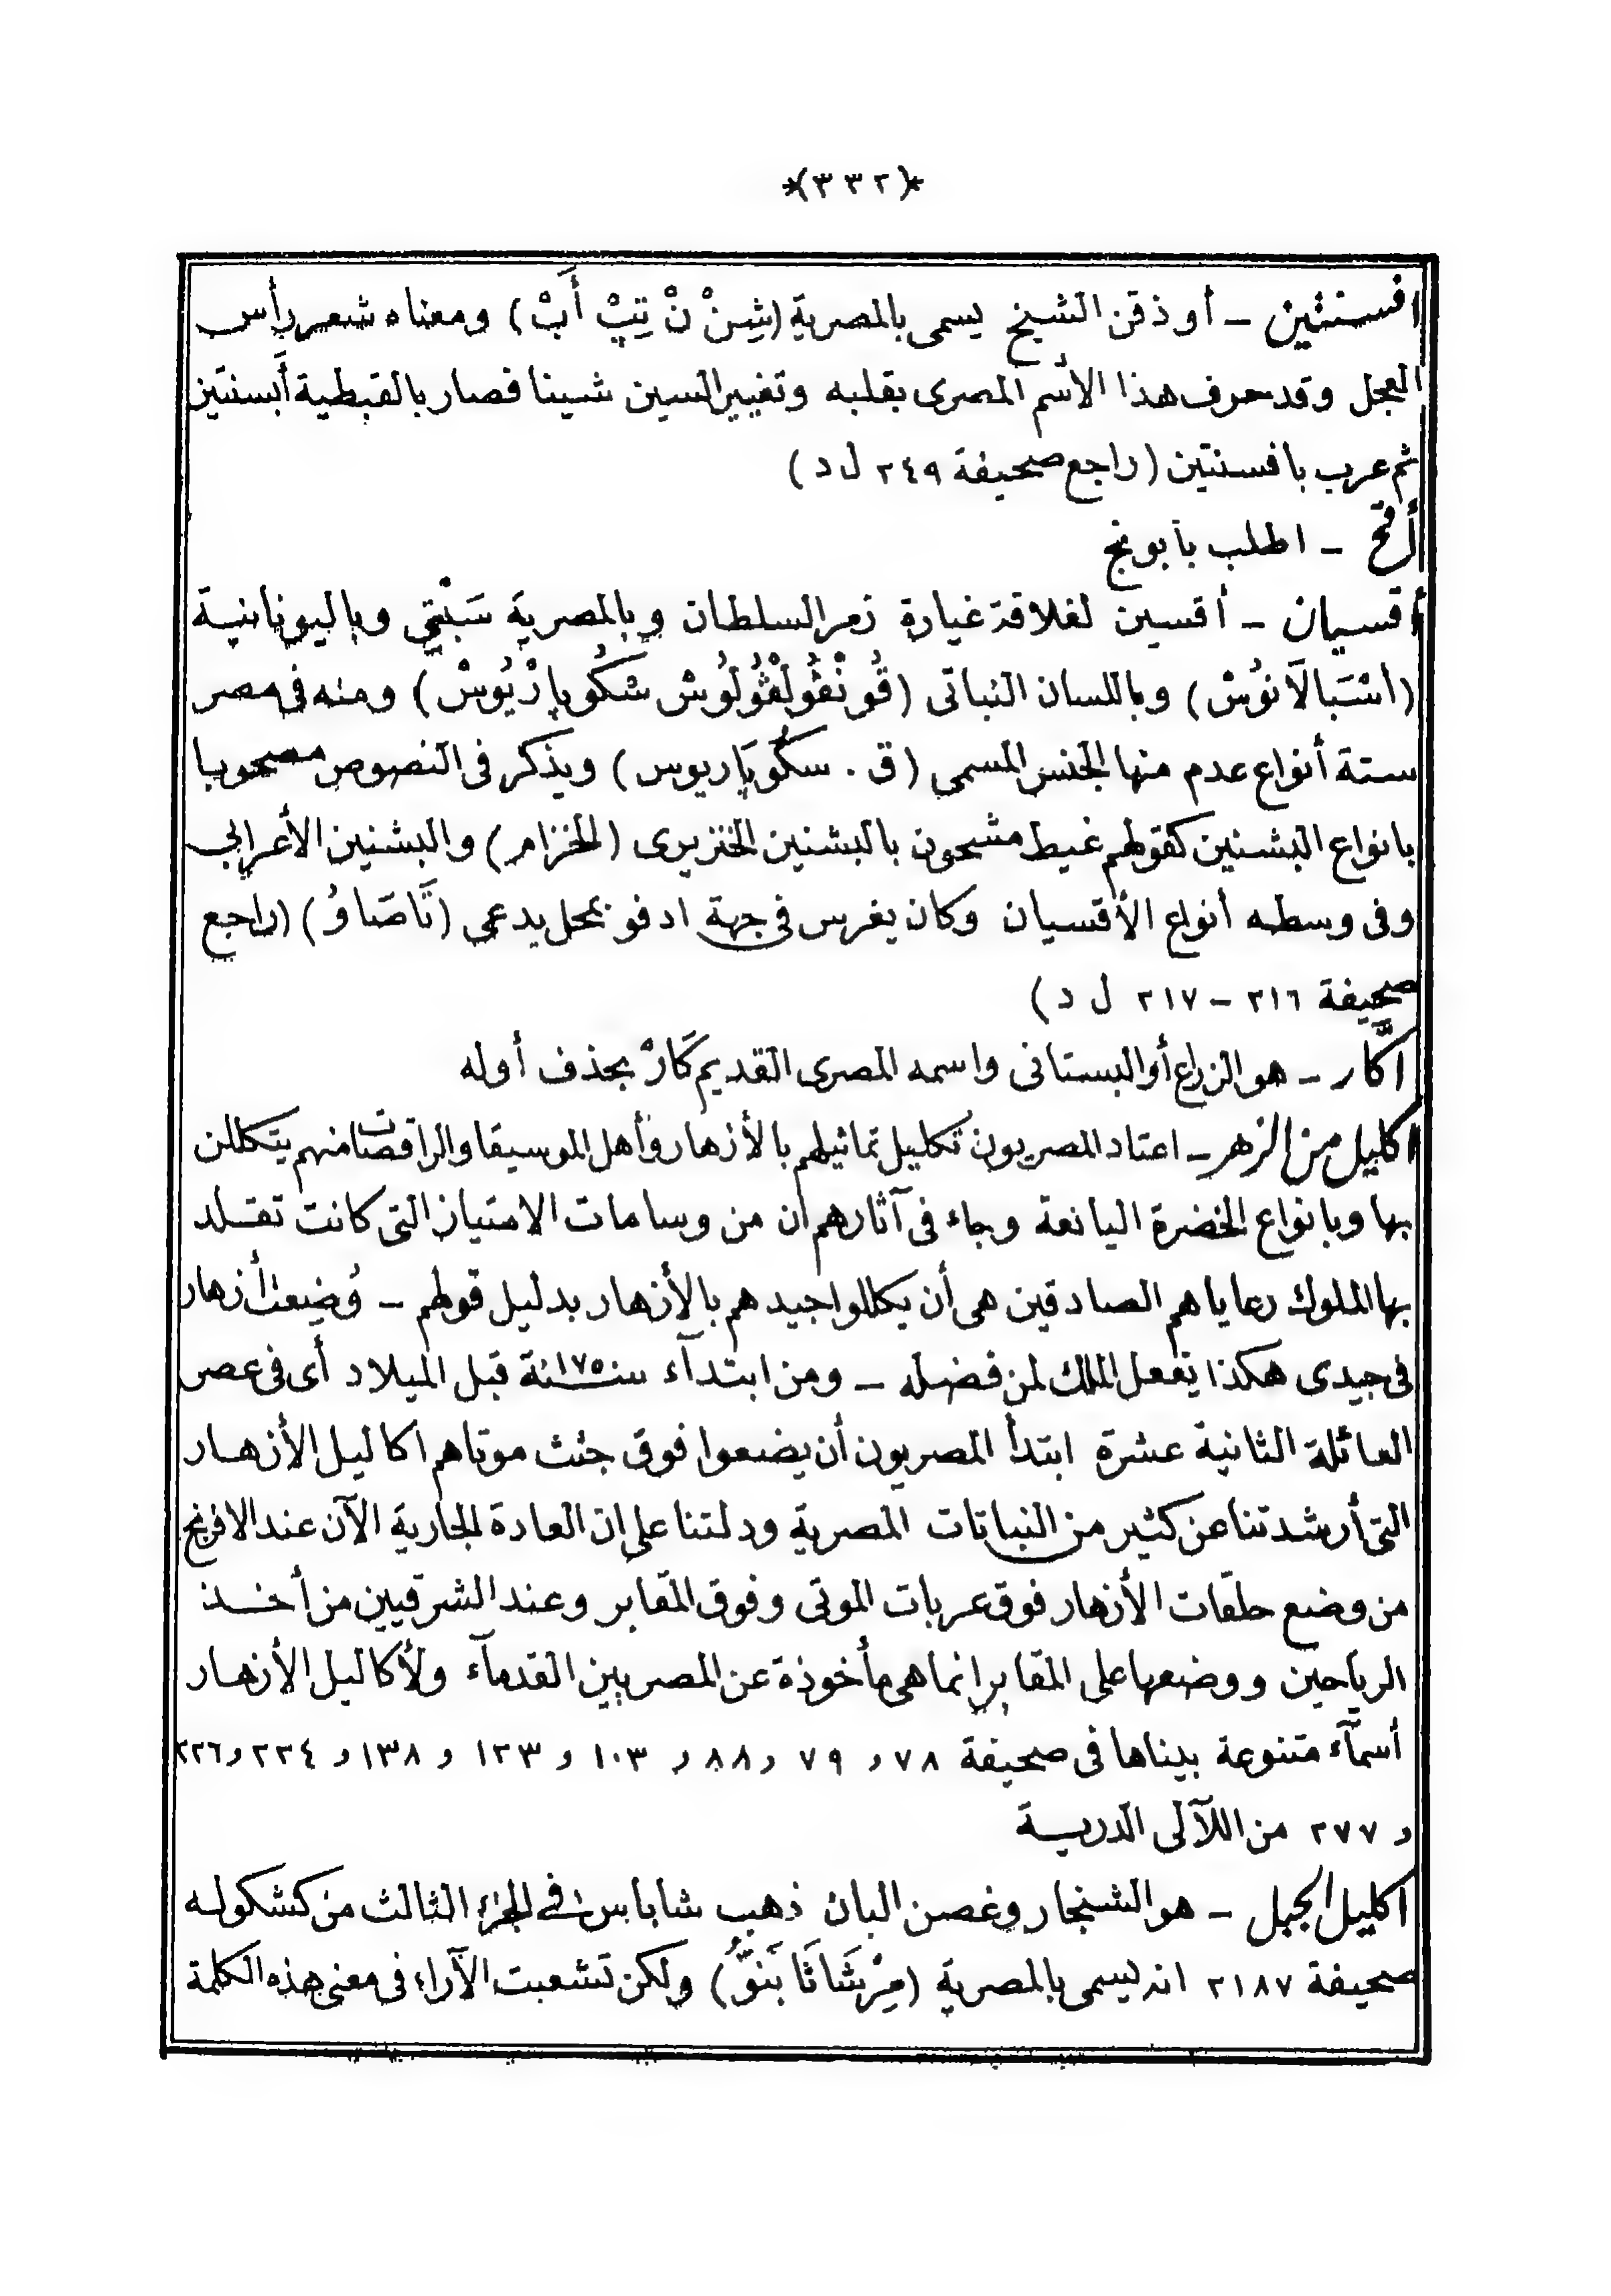 *(٣٣٢)*
افسنتين – أو ذقن الشيخ يسمى بالمصرية (شِنْ نْ تِبْ أَبْ) ومعناه شعر رأس
العجل وقد حرف هذا الاسم المصرى بقلبه وتغيير السين شينا فصار بالقبطية أَبسنتين
ثم عرب بافسنتين (راجع صحيفة ٢٤٩ ل د)
أقح – اطلب بابونج
أقسيان – أقسين لغلاقة غيارة زمر السلطان وبالمصرية سَبْتِى وباليونانية
(اسْتَبالاَنوُسْ) وباللسان النباتى (قُونْڤُولْڤُولُوسْ سْكُوپارْيُوسْ) ومنه فى مصر
ستة أنواع عدم منها الجنس المسمى (ق . سكُوپاريوس) ويذكر فى النصوص مصحوبا
بانواع البشنين كقولهم غيط مشحون بالبشنين الخنزيرى (الخزام) والبشنين الأعرابى
وفى وسطه أنواع الأقسيان وكان يغرس فى جهة ادفو بمحل يدعى (تَاصَاوُ) (راجع
صحيفة ٢١٦ – ٢١٧ ل د)
اكَّار – هو الزراع أو البستانى واسمه المصرى القديم كَارْ بحذف أوله
اكليل من الزهر – اعتاد المصريون تكليل تماثيلهم بالأزهار وأهل الموسيقا والراقصات منهم يتكللن
بها وبانواع الخضرة اليانعة وجاء فى آثارهم ان من وسامات الامتياز التى كانت تقلد
بها الملوك رعاياهم الصادقين هى أن يكللوا جيدهم بالأزهار بدليل قولهم – وُضِعت أزهار
فى جيدى هكذا يفعل الملك لمن فضله – ومن ابتدآء سنة ١٧٥٠ قبل الميلاد أى فى عصر
العائلة الثانية عشرة ابتدأ المصريون أن يضعوا فوق جثث موتاهم اكاليل الأزهار
التى أرشدتنا عن كثير من النباتات المصرية ودلتنا على ان العادة الجارية الآن عند الافرنج
من وضع حلقات الأزهار فوق عربات الموتى وفوق المقابر وعند الشرقيين من أخذ
الرياحين ووضعها على المقابر انما هى مأخوذة عن المصريين القدمآء ولأكاليل الأزهار
أسمآء متنوعة بيناها فى صحيفة ٧٨ و ٧٩ و ٨٨ و ١٠٣ و ١٢٣ و ١٣٨ و ٢٣٤ و ٢٢٦
و ٢٧٧ من اللآلى الدرية
اكليل الجبل – هو الشنجار وغصن البان ذهب شاباس فى الجزء الثالث من كشكوله
صحيفة ٢١٨٧ انه يسمى بالمصرية (مِرْشَاثَا بَنوَّ) ولكن تشعبت الآراء فى معنى هذه الكلمة